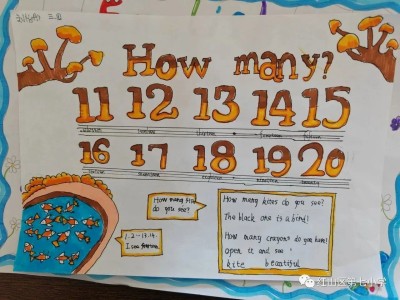 三四
How many?
11 12 13 14 15
eleven twelve thirteen fourteen fifteen
16 17 18 19 20
How many fis
do you see?
1.2...13.14.
I see fourteen.
How many kites do you see?
The black one is a bird!
How many crayons do you have?
open it and see
kite beautiful
江山区第七小学